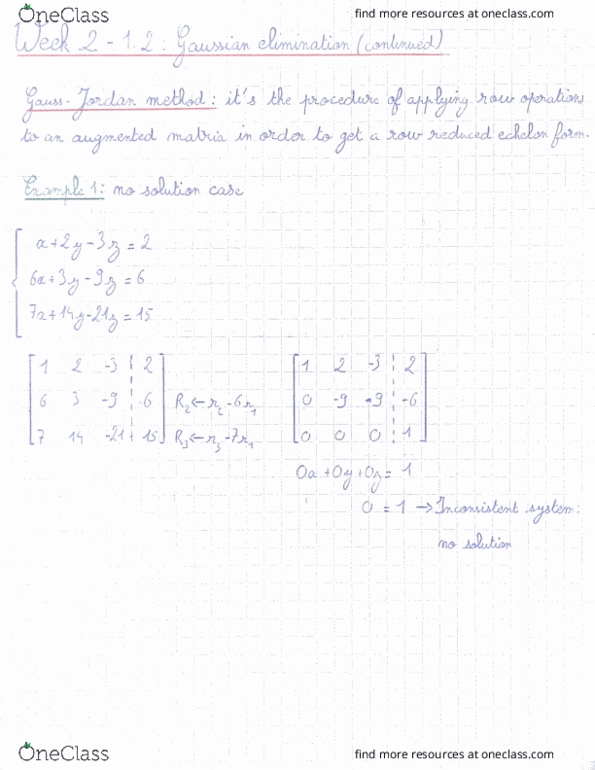 OneClass
find more resources at oneclass.com
Week 2 - 1.2 : Gaussian elimination (continued)
Gauss-Jordan method: it's the procedure of applying row operations
to an augmented matrix in order to get a row reduced echelon form.
Example 1: no solution case
x+2y-3z=2
6x+3y-9z=6
7x+14y-21z=15
1 2 -3 2
6 3 -9 6 R2←r2-6r1
7 14 -21 15 R3←r3-7r1
1 2 -3 2
0 -9 -9 -6
0 0 0 1
0x+0y+0z=1
0 = 1 → Inconsistent system:
no solution
OneClass
find more resources at oneclass.com